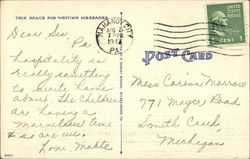 THIS SPACE FOR WRITING MESSAGES
Dear Sis,
Pa
hospitality is
really something
to write home
about. The children
are having a
marvelous time
& so are we.
Love, Mable
MAHANOY CITY
PA.
UNITED STATES POSTAGE
1 CENT 1
POST CARD
Miss Corinne Morrow
771 Mayer Road
Smiths Creek,
Michigan